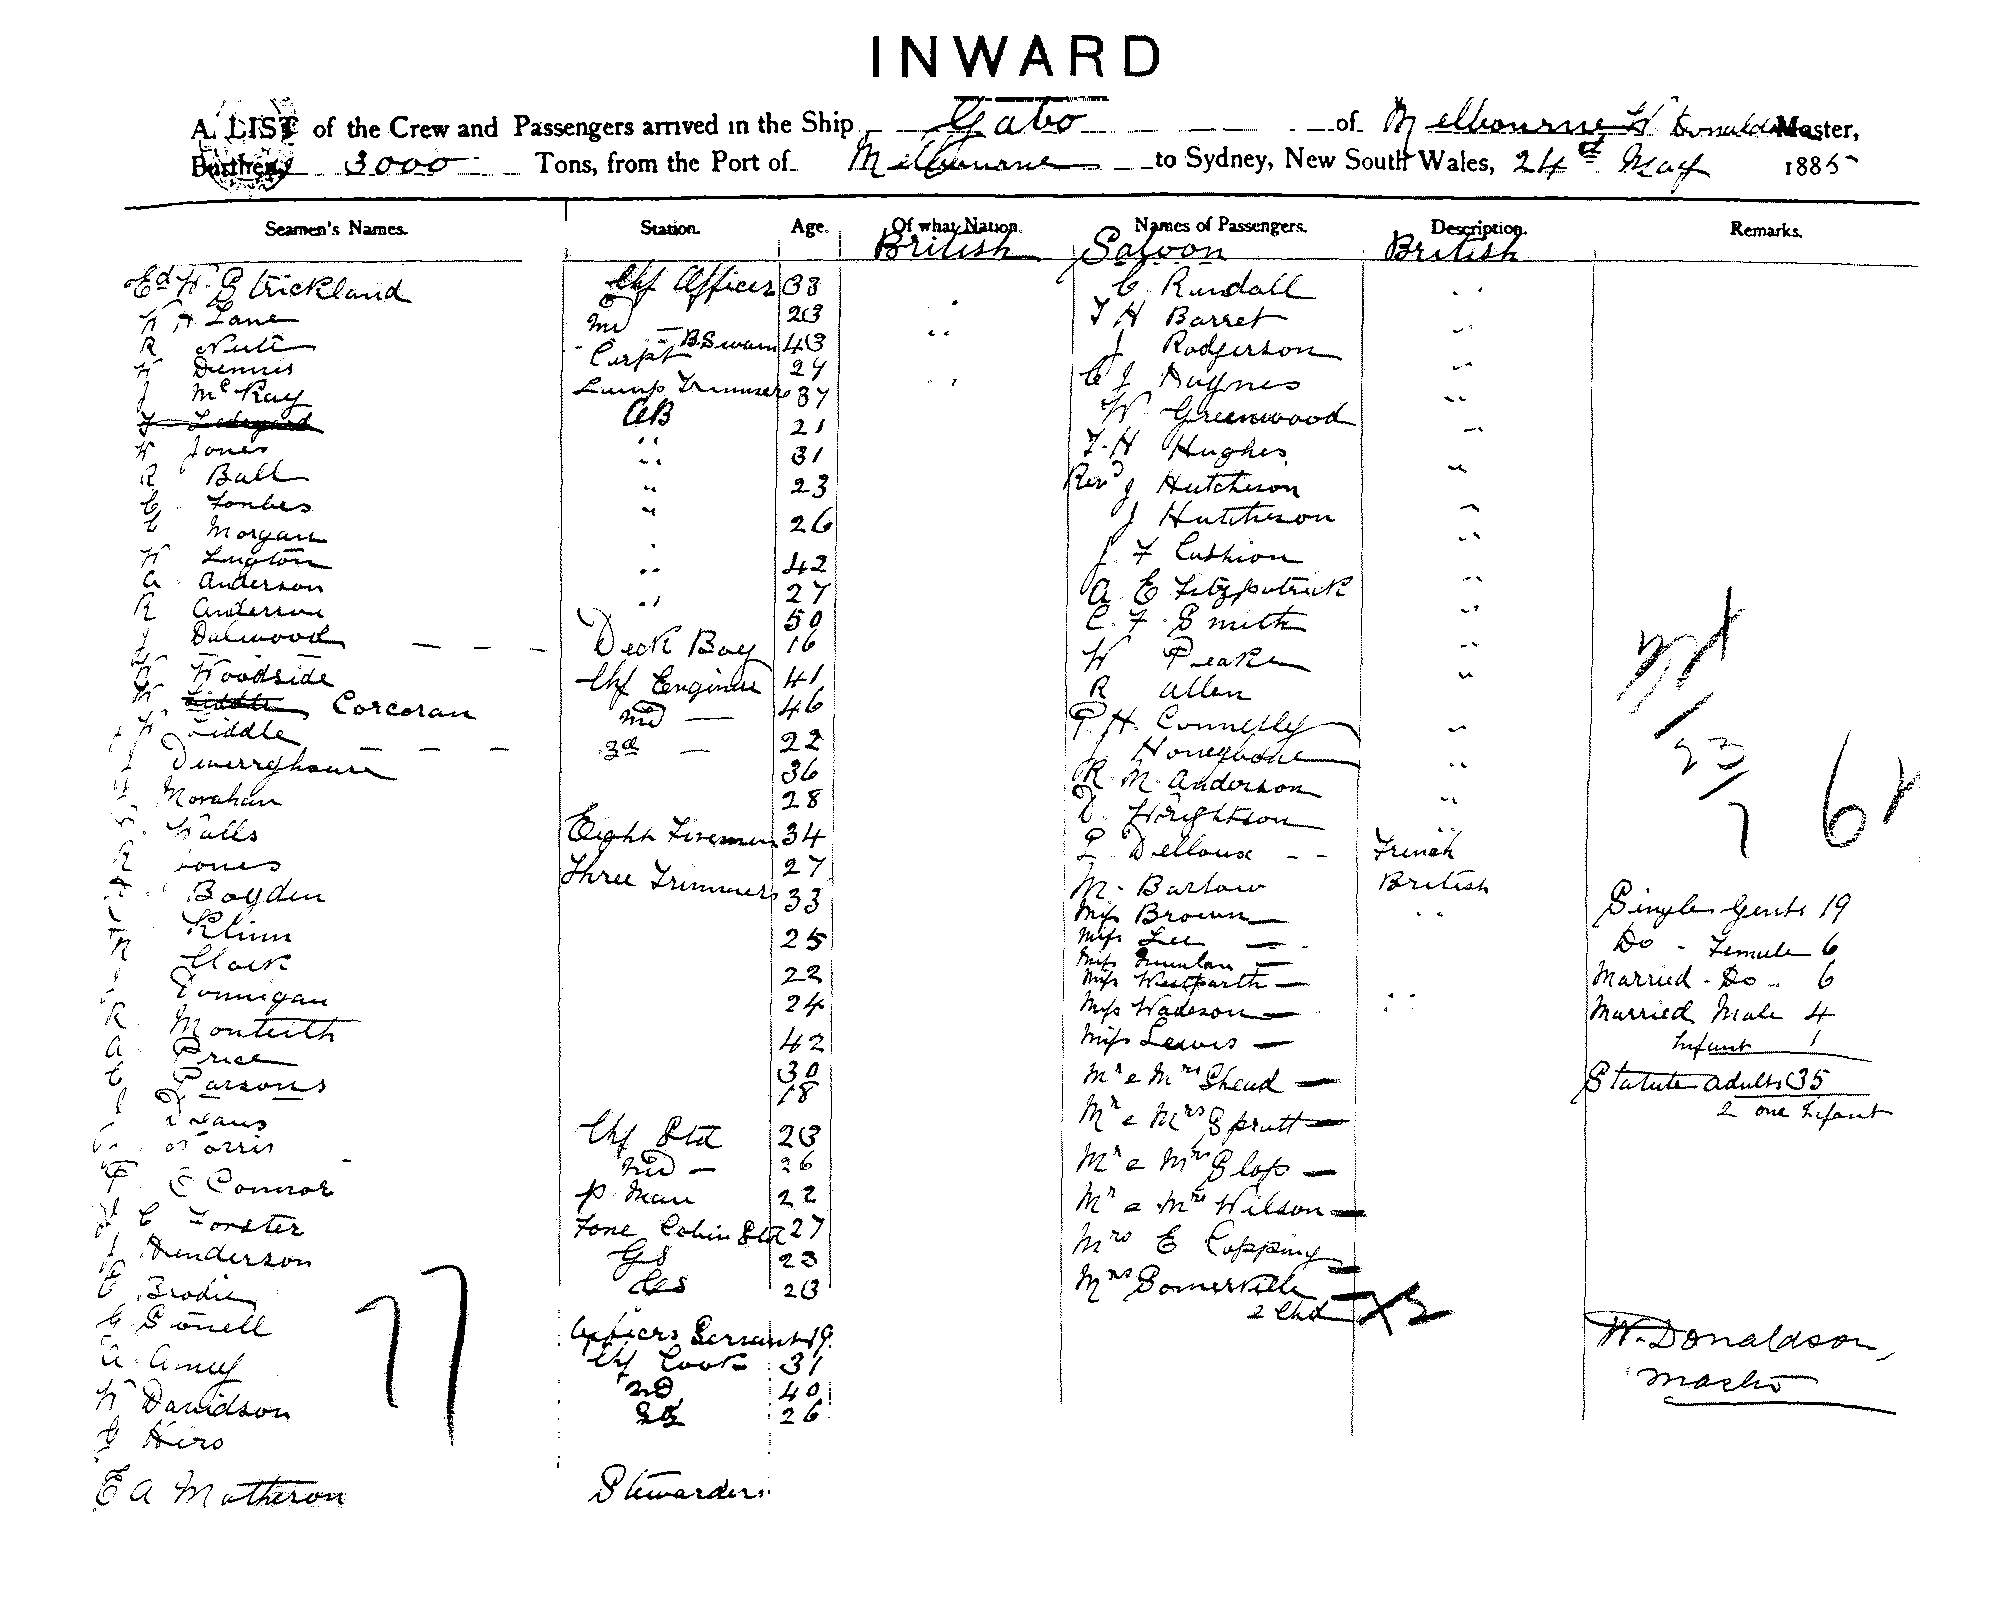 INWARD
A. LIST of the Crew and Passengers arrived in the Ship Gabo of Melbourne W Donaldson Master,
Burthen 3000 Tons, from the Port of Melbourne to Sydney, New South Wales, 24th May 1885
Seamen's Names. Station. Age. Of what Nation. Names of Passengers. Description. Remarks.
British Saloon British
Ed W Strickland Chf Officer 33 C Randall
W H Lane 2nd 23 T H Barret
R Nutt BSwain 43 J Rodgerson
W Dennis Carpt 24 C J Haynes
J McKay Lamp Trimmer 37 W Greenwood
AB 21 T. H Hughes
W Jones 31 Revd J Hutcheson
R Ball 23 J Hutcheson
C Forbes 26 J F Cushion
C Morgan 42 A E Fitzpatrick
W Lugton 27 C. F. Smith
A Anderson 50 W Peake
R Anderson R Allen
J Dalwood Deck Boy 16 P. H. Connelly
W Woodside Chf Engineer 41 J Honeybone
W Liddle Corcoran 2nd 46 R. M. Anderson
W Liddle 3rd 22 D. Wrightson
J Dewerryhouse 36 Delloux French
Morahan 28 M. Barlow British
Walls Eight Firemen 34 Miss Brown
R Jones Three Trimmers 27 Miss Lee
Boyden 33 Miss Quinlan
Klinn 25 Miss Westgarth
R Clark 22 Miss Wadeson
J Donnigan 24 Miss Lewis
R Monteith 42 Mr & Mrs Shead
A. Price 30 Mr & Mrs Spratt
C Parsons 18 Mr & Mrs Slop
J Deans Chf Std 23 Mr & Mrs Wilson
Morris 2nd 26 Mrs E Copping
E Connor P. Man 22 Mrs Somerville
J C Forster Fore Cabin Std 27 2 Chd
J Henderson GS 23
C Brodie GS 23
G Sonell Officers Servant 19
A. Amey Chf Cook 31
W Davidson 2nd 40
J Hero 3rd 26
E A Matheron Stewardess
77
23
7
Single Gents 19
Do - Female 6
Married - Do - 6
Married Male 4
Infant 1
Statute adults 35
2 one Infant
W. Donaldson,
Master